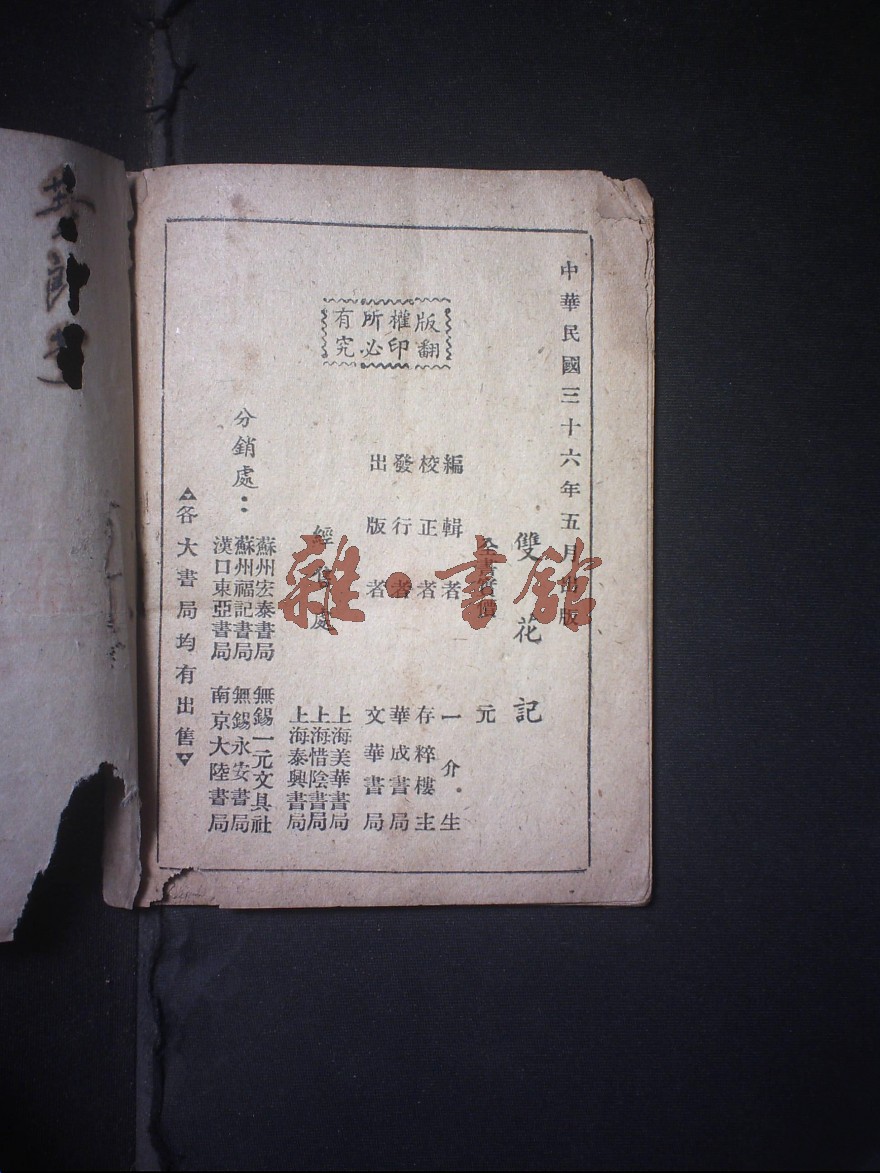 中華民國三十六年五月出版
雙花記
全書實價 元
編輯者 一介·生
校正者 存粹樓主
發行者 華成書局
出版者 文華書局
版權所有
翻印必究
經售處
上海美華書局
上海惜陰書局
上海泰興書局
分銷處：
蘇州宏泰書局 無錫一元文具社
蘇州福記書局 無錫永安書局
漢口東亞書局 南京大陸書局
各大書局均有出售
雜·書館